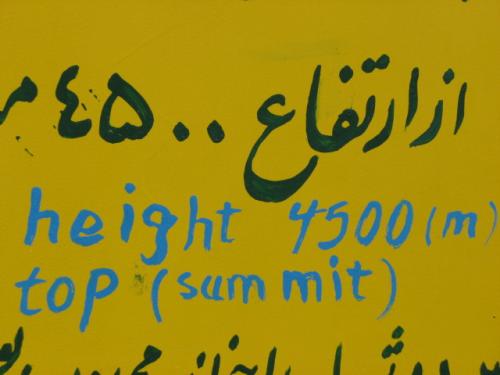 از ارتفاع ۴۵۰۰
height 4500 (m)
top (summit)